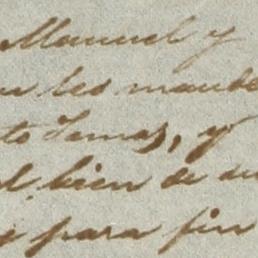 Manuel y
les mande
to Tomas, y
el bien de su
para fin